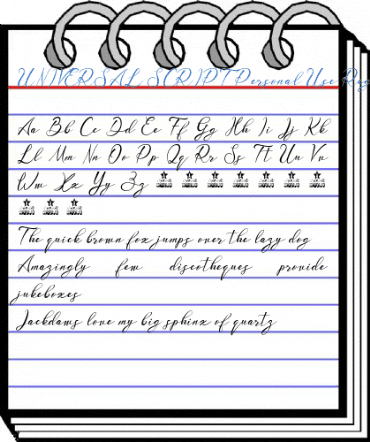 UNIVERSAL SCRIPT Personal Use Reg
Aa Bb Cc Dd Ee Ff Gg Hh Ii Jj Kk
Ll Mm Nn Oo Pp Qq Rr Ss Tt Uu Vv
Ww Xx Yy Zz
The quick brown fox jumps over the lazy dog
Amazingly few discotheques provide
jukeboxes
Jackdaws love my big sphinx of quartz